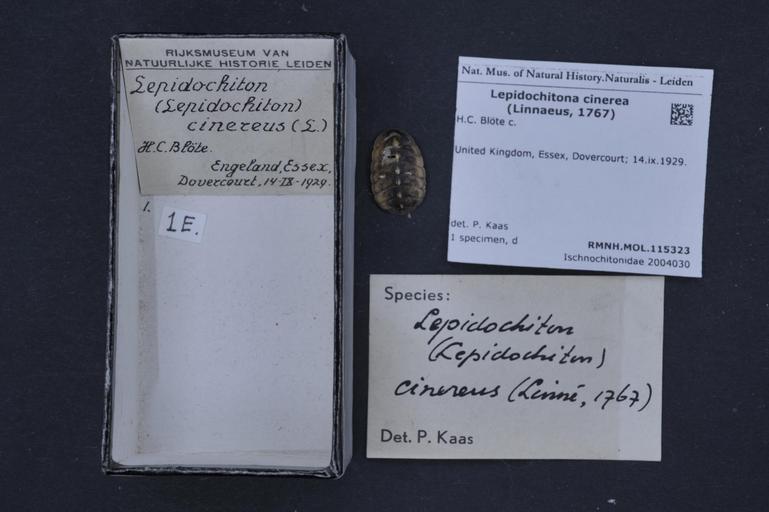 RIJKSMUSEUM VAN
NATUURLIJKE HISTORIE LEIDEN
Lepidochiton
(Lepidochiton)
cinereus (L.)
H.C. Blöte.
Engeland, Essex,
Dovercourt, 14-IX-1929.
1.
1E.
Nat. Mus. of Natural History.Naturalis - Leiden
Lepidochitona cinerea
(Linnaeus, 1767)
H.C. Blöte c.
United Kingdom, Essex, Dovercourt; 14.ix.1929.
det. P. Kaas
1 specimen, d
RMNH.MOL.115323
Ischnochitonidae 2004030
Species:
Lepidochiton
(Lepidochiton)
cinereus (Linné, 1767)
Det. P. Kaas